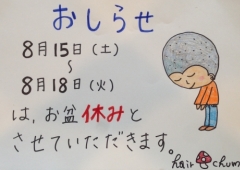 おしらせ
8月15日(土)
～
8月18日(火)
は、お盆休みと
させていただきます。
hair chum